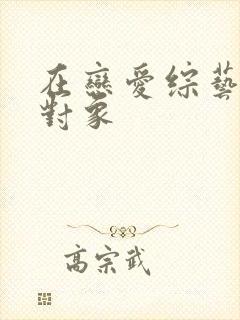 在戀愛綜藝
對象
高宗武